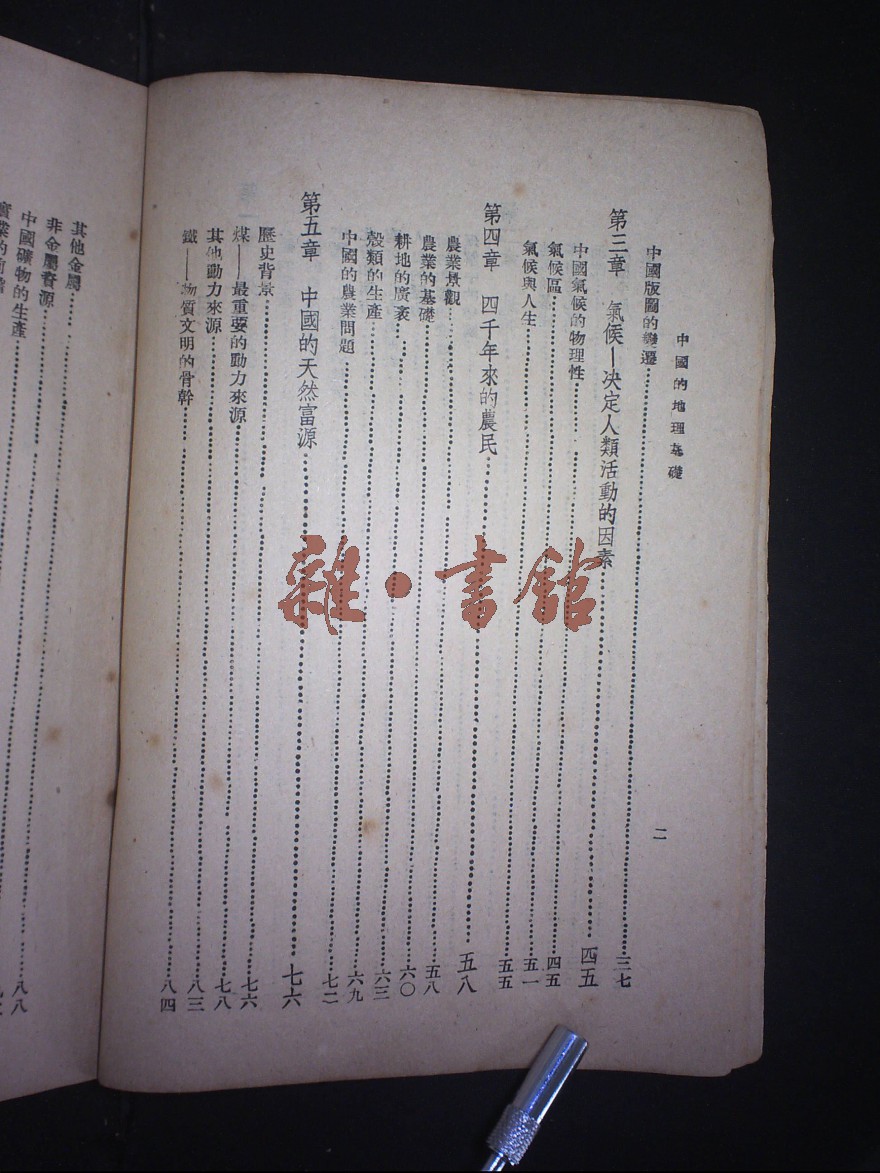 中國的地理基礎
二
中國版圖的變遷……三七
第三章　氣候—决定人類活動的因素……四五
中國氣候的物理性……四五
氣候區……五一
氣候與人生……五五
第四章　四千年來的農民……五八
農業景觀……五八
農業的基礎……六〇
耕地的廣袤……六三
殼類的生產……六九
中國的農業問題……七二
第五章　中國的天然富源……七六
歷史背景……七六
煤——最重要的動力來源……七八
其他動力來源……八三
鐵——物質文明的骨幹……八四
其他金屬……
非金屬資源……八八
中國礦物的生產
雜·書館